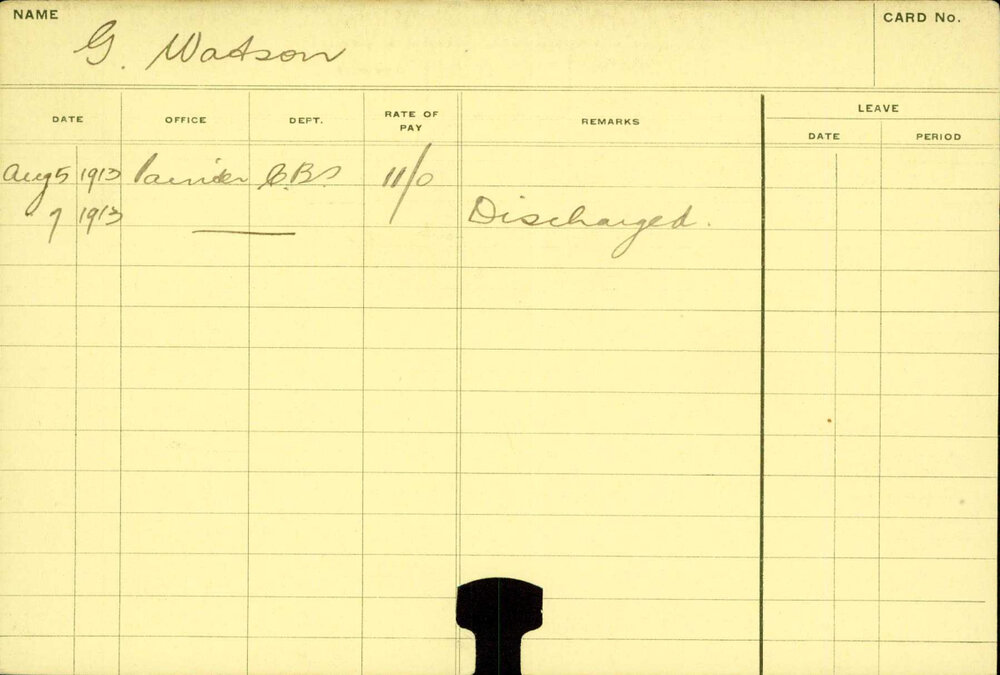 NAME CARD No.
G. Watson
LEAVE
DATE OFFICE DEPT. RATE OF PAY REMARKS DATE PERIOD
Aug 5 1913 Painter 11/0
" 7 1913 Discharged.